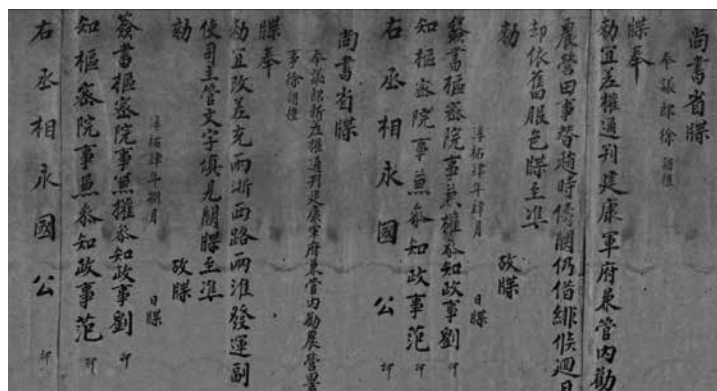 尚書省牒
奉議郎徐謂禮
牒奉
敕宜差權通判建康軍府兼管内勸
農營田事替趙時侒闕仍借緋候迴日
却依舊服色牒至准
敕
故牒
淳祐肆年肆月 日牒
簽書樞密院事兼權參知政事劉 押
知樞密院事兼參知政事范 押
右丞相永國公 押
尚書省牒
奉議郎新差權通判建康軍府兼管内勸農營
事徐謂禮
牒奉
敕宜改差充兩浙西路兩淮發運副
使司主管文字填見闕牒至准
敕
故牒
淳祐肆年捌月 日牒
簽書樞密院事兼權參知政事劉 押
知樞密院事兼參知政事范 押
右丞相永國公 押